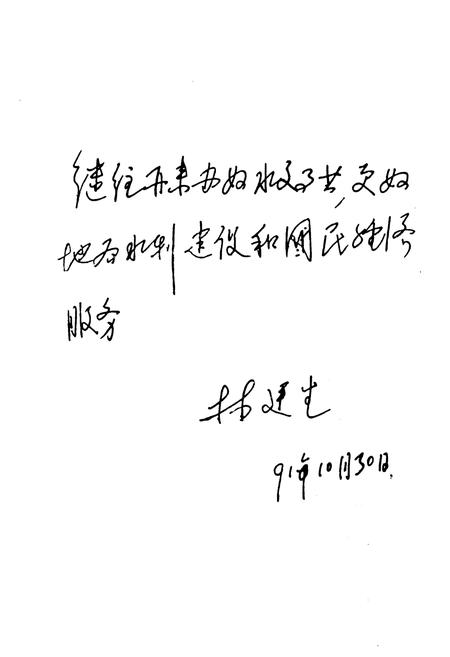 继往开来办好水文事, 更好
地为水利建设和國民经济
服务
林廷生
91年10月30日.